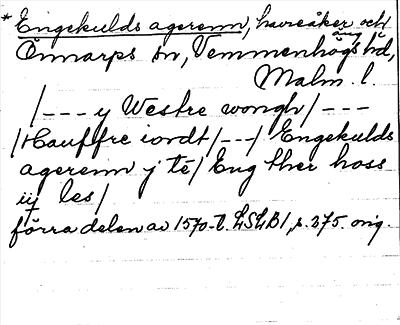 * Engekulds agerenn, havreåker och äng
Önnarps sn, Vemmenhögs hd,
Malm. l.
/--- y Westre wongh/---
/Hauffre iordt/---/ Engekulds
agerenn j té/ Eng ther hoss
iij les/
förra delen av 1570-t. LSLB1, s. 275. orig.